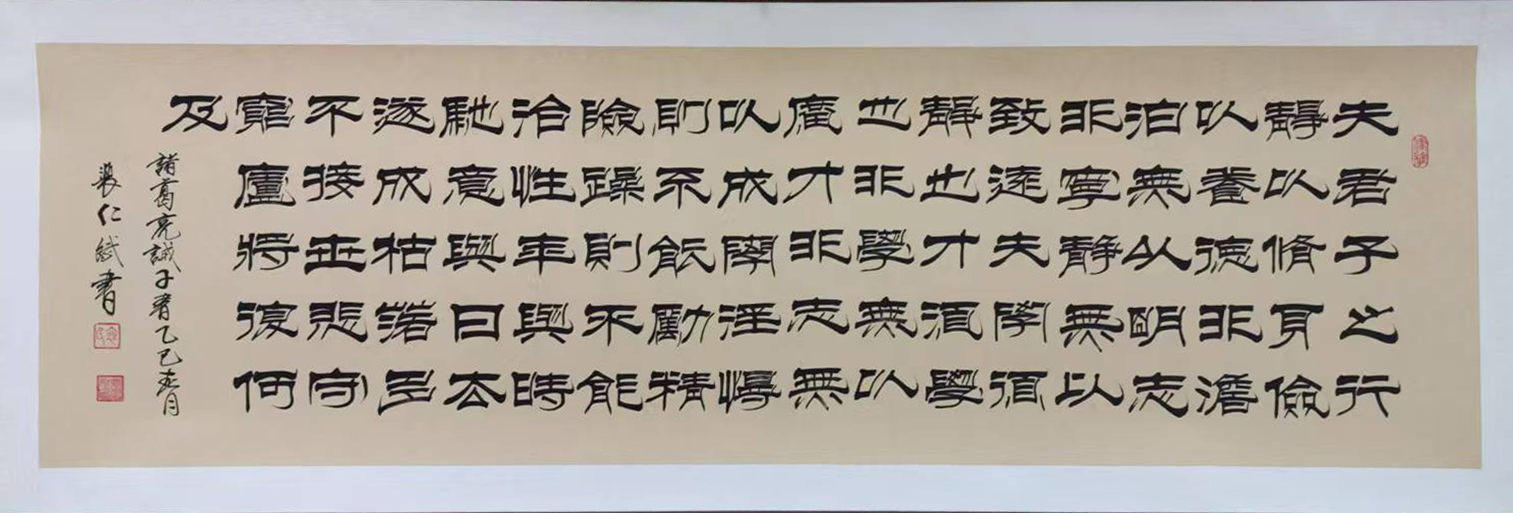 夫君子之行
靜以脩身儉
以養德非澹
泊無以明志
非寧靜無以
致遠夫學須
靜也才須學
也非學無以
廣才非志無
以成學淫慢
則不能勵精
險躁則不能
治性年與時
馳意與日去
遂成枯落多
不接世悲守
窮廬將復何
及
諸葛亮誡子書乙巳春月
裴仁書